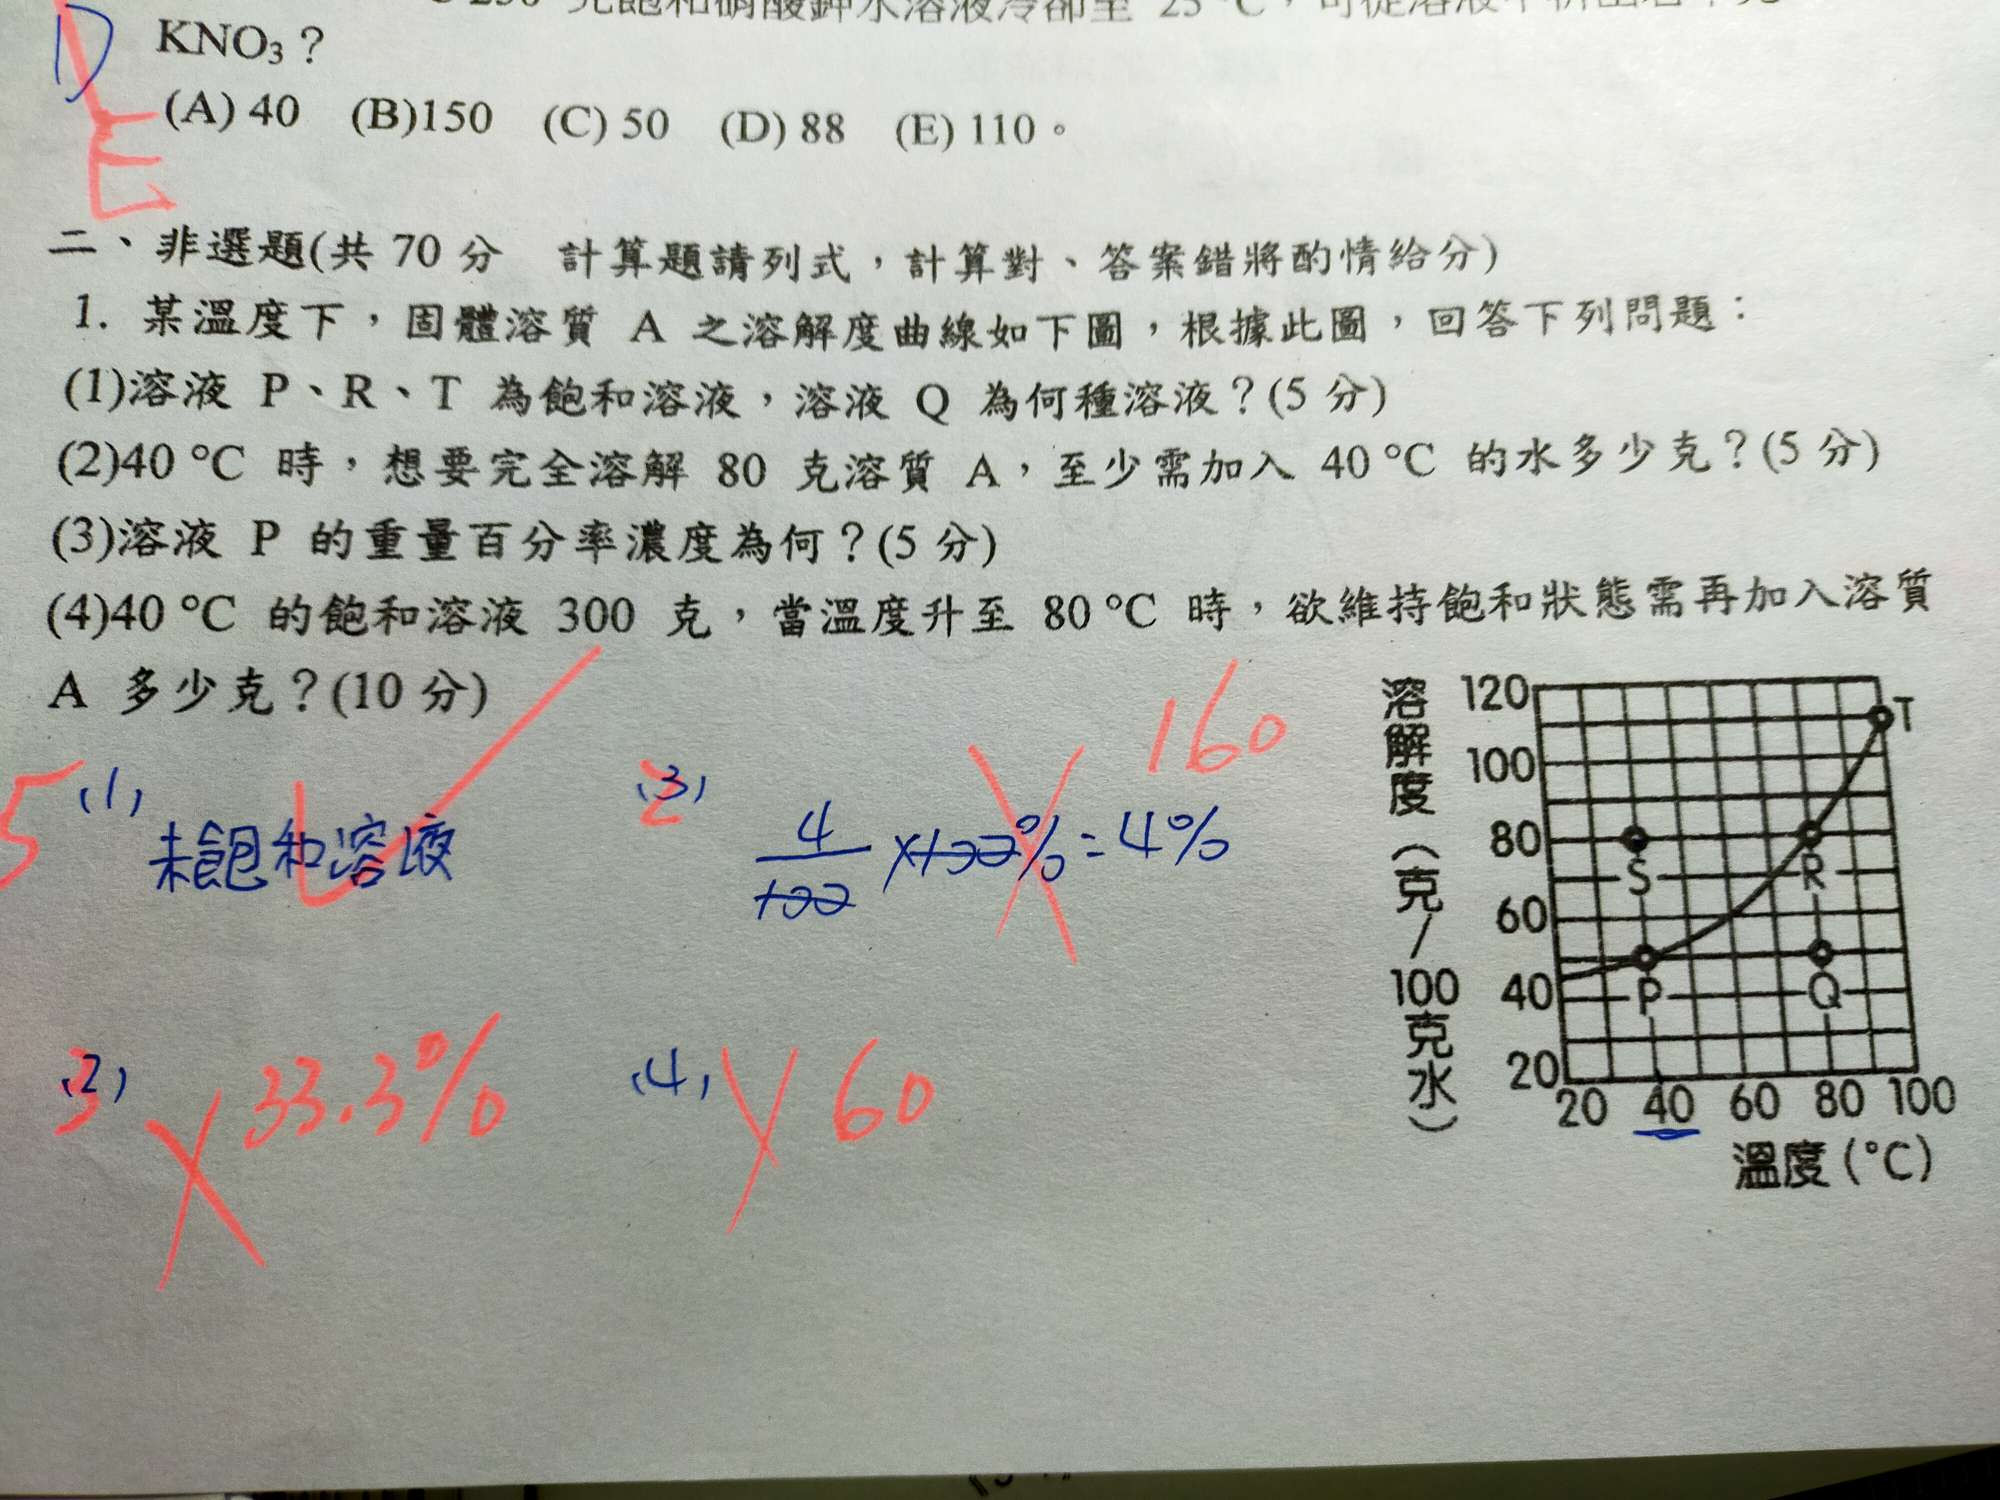 KNO₃？
(A) 40 (B)150 (C) 50 (D) 88 (E) 110。
D
E
二、非選題(共 70 分 計算題請列式，計算對、答案錯將酌情給分)
1. 某溫度下，固體溶質 A 之溶解度曲線如下圖，根據此圖，回答下列問題：
(1)溶液 P、R、T 為飽和溶液，溶液 Q 為何種溶液？(5 分)
(2)40 °C 時，想要完全溶解 80 克溶質 A，至少需加入 40 °C 的水多少克？(5 分)
(3)溶液 P 的重量百分率濃度為何？(5 分)
(4)40 °C 的飽和溶液 300 克，當溫度升至 80 °C 時，欲維持飽和狀態需再加入溶質
A 多少克？(10 分)
5 (1)
未飽和溶液
(3) 2
4/100 ×100% = 4%
160
(2) 3
33.3%
(4) 60
溶解度(克/100克水)
120
100
80
60
40
20
T
S
R
P
Q
20 40 60 80 100
溫度(°C)